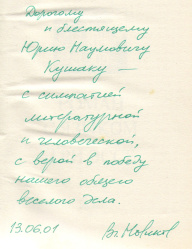 Дорогому
и блестящему
Юрию Наумовичу
Кушаку —
с симпатией
литературной
и человеческой,
с верой в победу
нашего общего
веселого дела.
13.06.01 Вл. Новиков